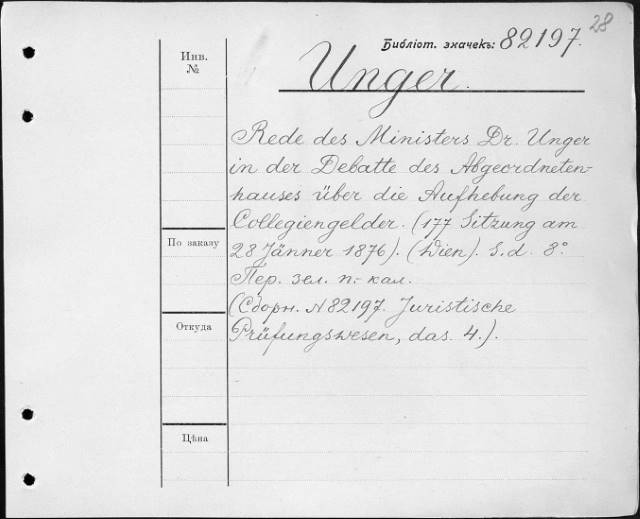 28
Библіот. значекъ: 82197.
Инв.
№
Unger.
Rede des Ministers Dr. Unger
in der Debatte des Abgeordneten-
hauses über die Aufhebung der
Collegiengelder. (177 Sitzung am
По заказу
28 Jänner 1876). (Wien). S. d. 8°.
Пер. зел. п.- кал.
(Сборн. N 82197. Juristische
Откуда
Prüfungswesen, das. 4.).
Цѣна